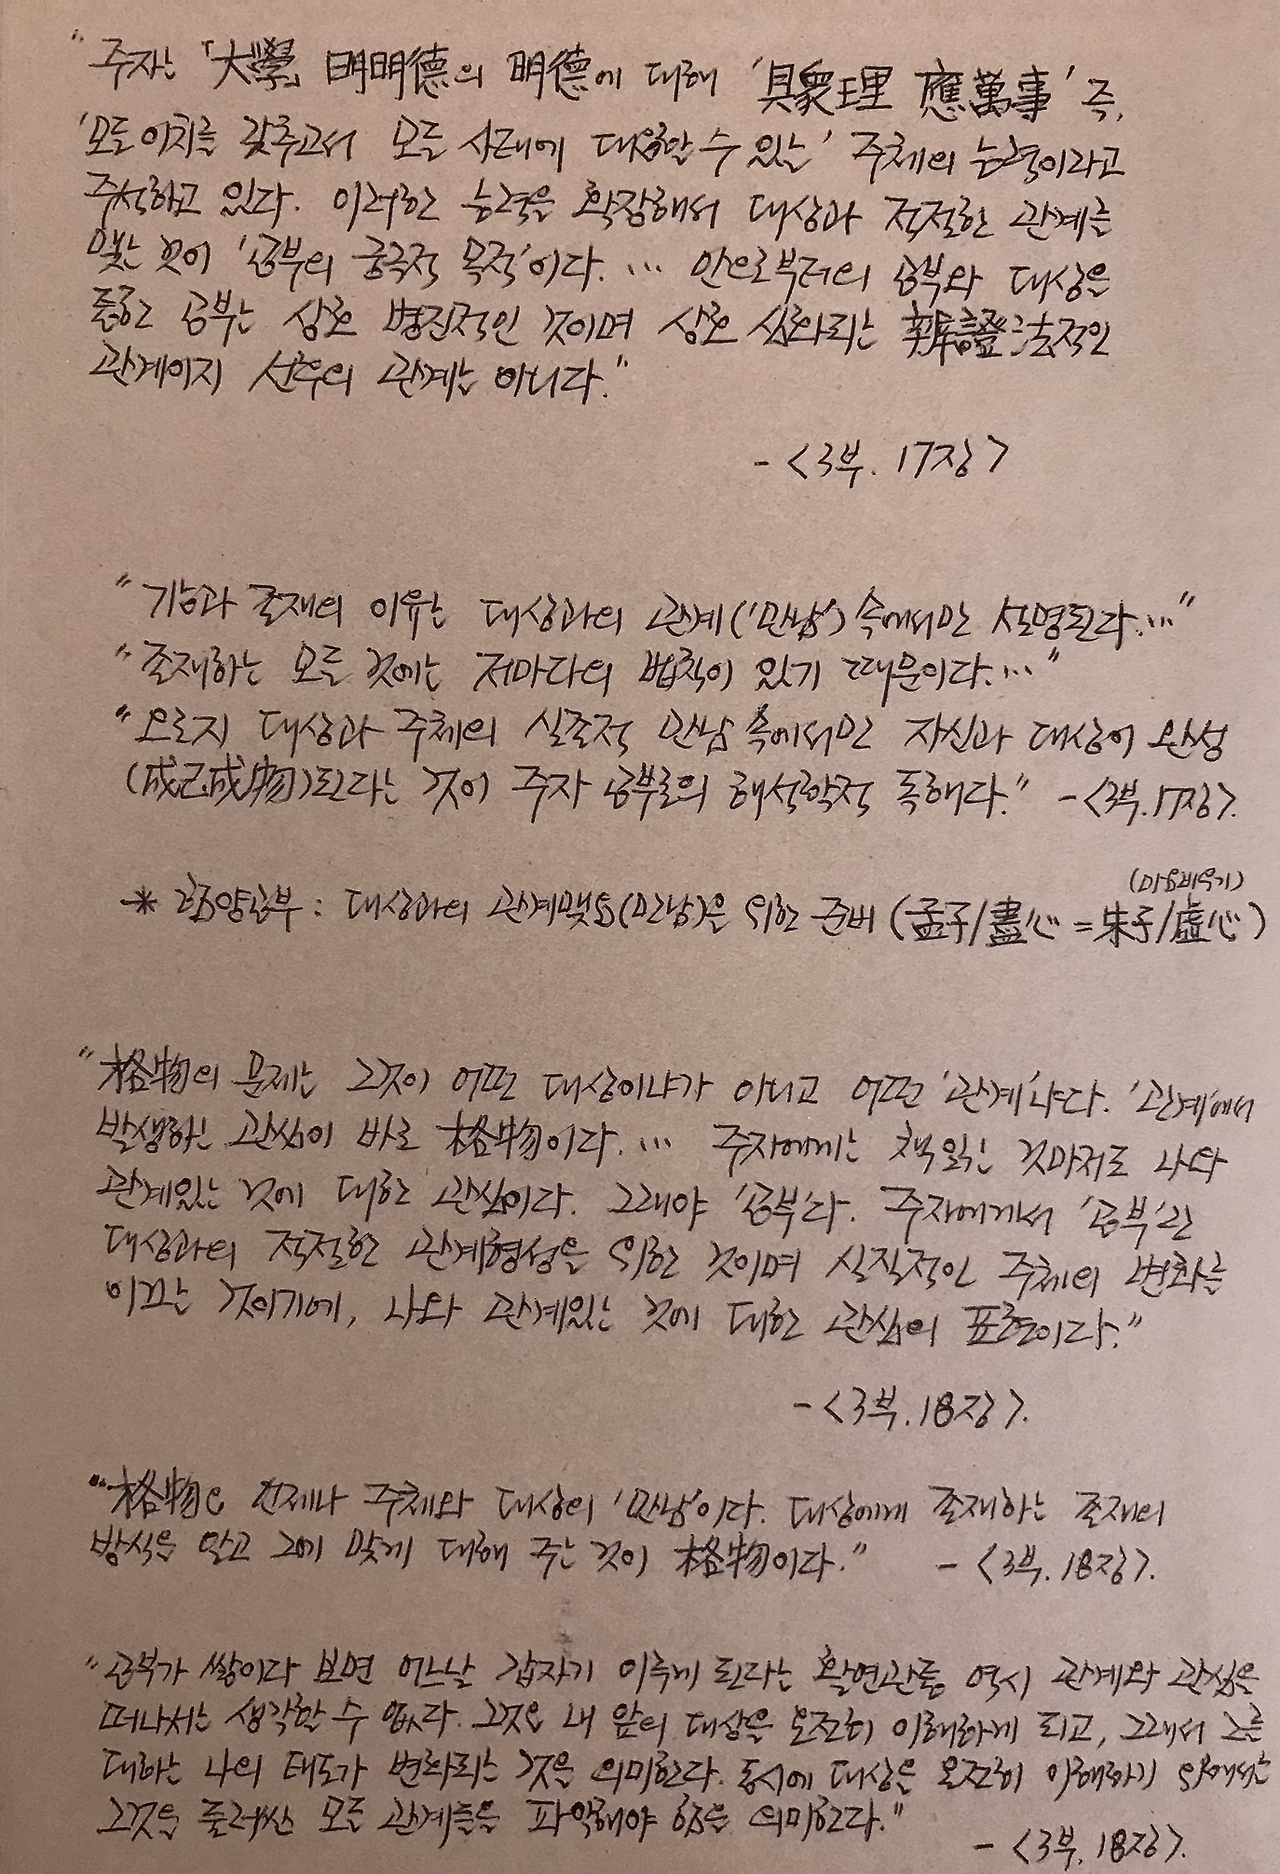 "주자는 「大學」 明明德의 明德에 대해 '具衆理 應萬事' 즉,
'모든 이치를 갖추고서 모든 사태에 대응할 수 있는' 주체의 능력이라고
주석하고 있다. 이러한 능력을 확장해서 대상과 적절한 관계를
맺는 것이 '공부의 궁극적 목적'이다. … 안으로부터의 공부와 대상을
통한 공부는 상호 병진적인 것이며 상호 심화되는 辨證法적인
관계이지 선후의 관계는 아니다."
- <3부. 17장>
"기능과 존재의 이유는 대상과의 관계('만남') 속에서만 설명된다…"
"존재하는 모든 것에는 저마다의 법칙이 있기 때문이다…"
"오로지 대상과 주체의 실존적 만남 속에서만 자신과 대상이 완성
(成己成物)된다는 것이 주자 공부론의 해석학적 독해다." - <3부. 17장>.
(마음비우기)
* 함양공부 : 대상과의 관계맺음(만남)을 위한 준비 (孟子/盡心 = 朱子/虛心)
"格物의 문제는 그것이 어떤 대상이냐가 아니고 어떤 '관계'냐다. '관계'에서
발생하는 관심이 바로 格物이다. … 주자에게는 책읽는 것마저도 나와
관계있는 것에 대한 관심이다. 그래야 '공부'다. 주자에게서 '공부'란
대상과의 적절한 관계형성을 위한 것이며 실질적인 주체의 변화를
이끄는 것이기에, 나와 관계있는 것에 대한 관심의 표현이다."
- <3부. 18장>.
"格物은 언제나 주체와 대상의 '만남'이다. 대상에게 존재하는 존재의
방식을 알고 그에 맞게 대해 주는 것이 格物이다." - <3부. 18장>.
"공부가 쌓이다 보면 어느날 갑자기 이루게 된다는 활연관통 역시 관계와 관심을
떠나서는 생각할 수 없다. 그것은 내 앞의 대상을 온전히 이해하게 되고, 그래서 그를
대하는 나의 태도가 변화되는 것을 의미한다. 동시에 대상을 온전히 이해하기 위해서는
그것을 둘러싼 모든 관계들을 파악해야 함을 의미한다."
- <3부. 18장>.